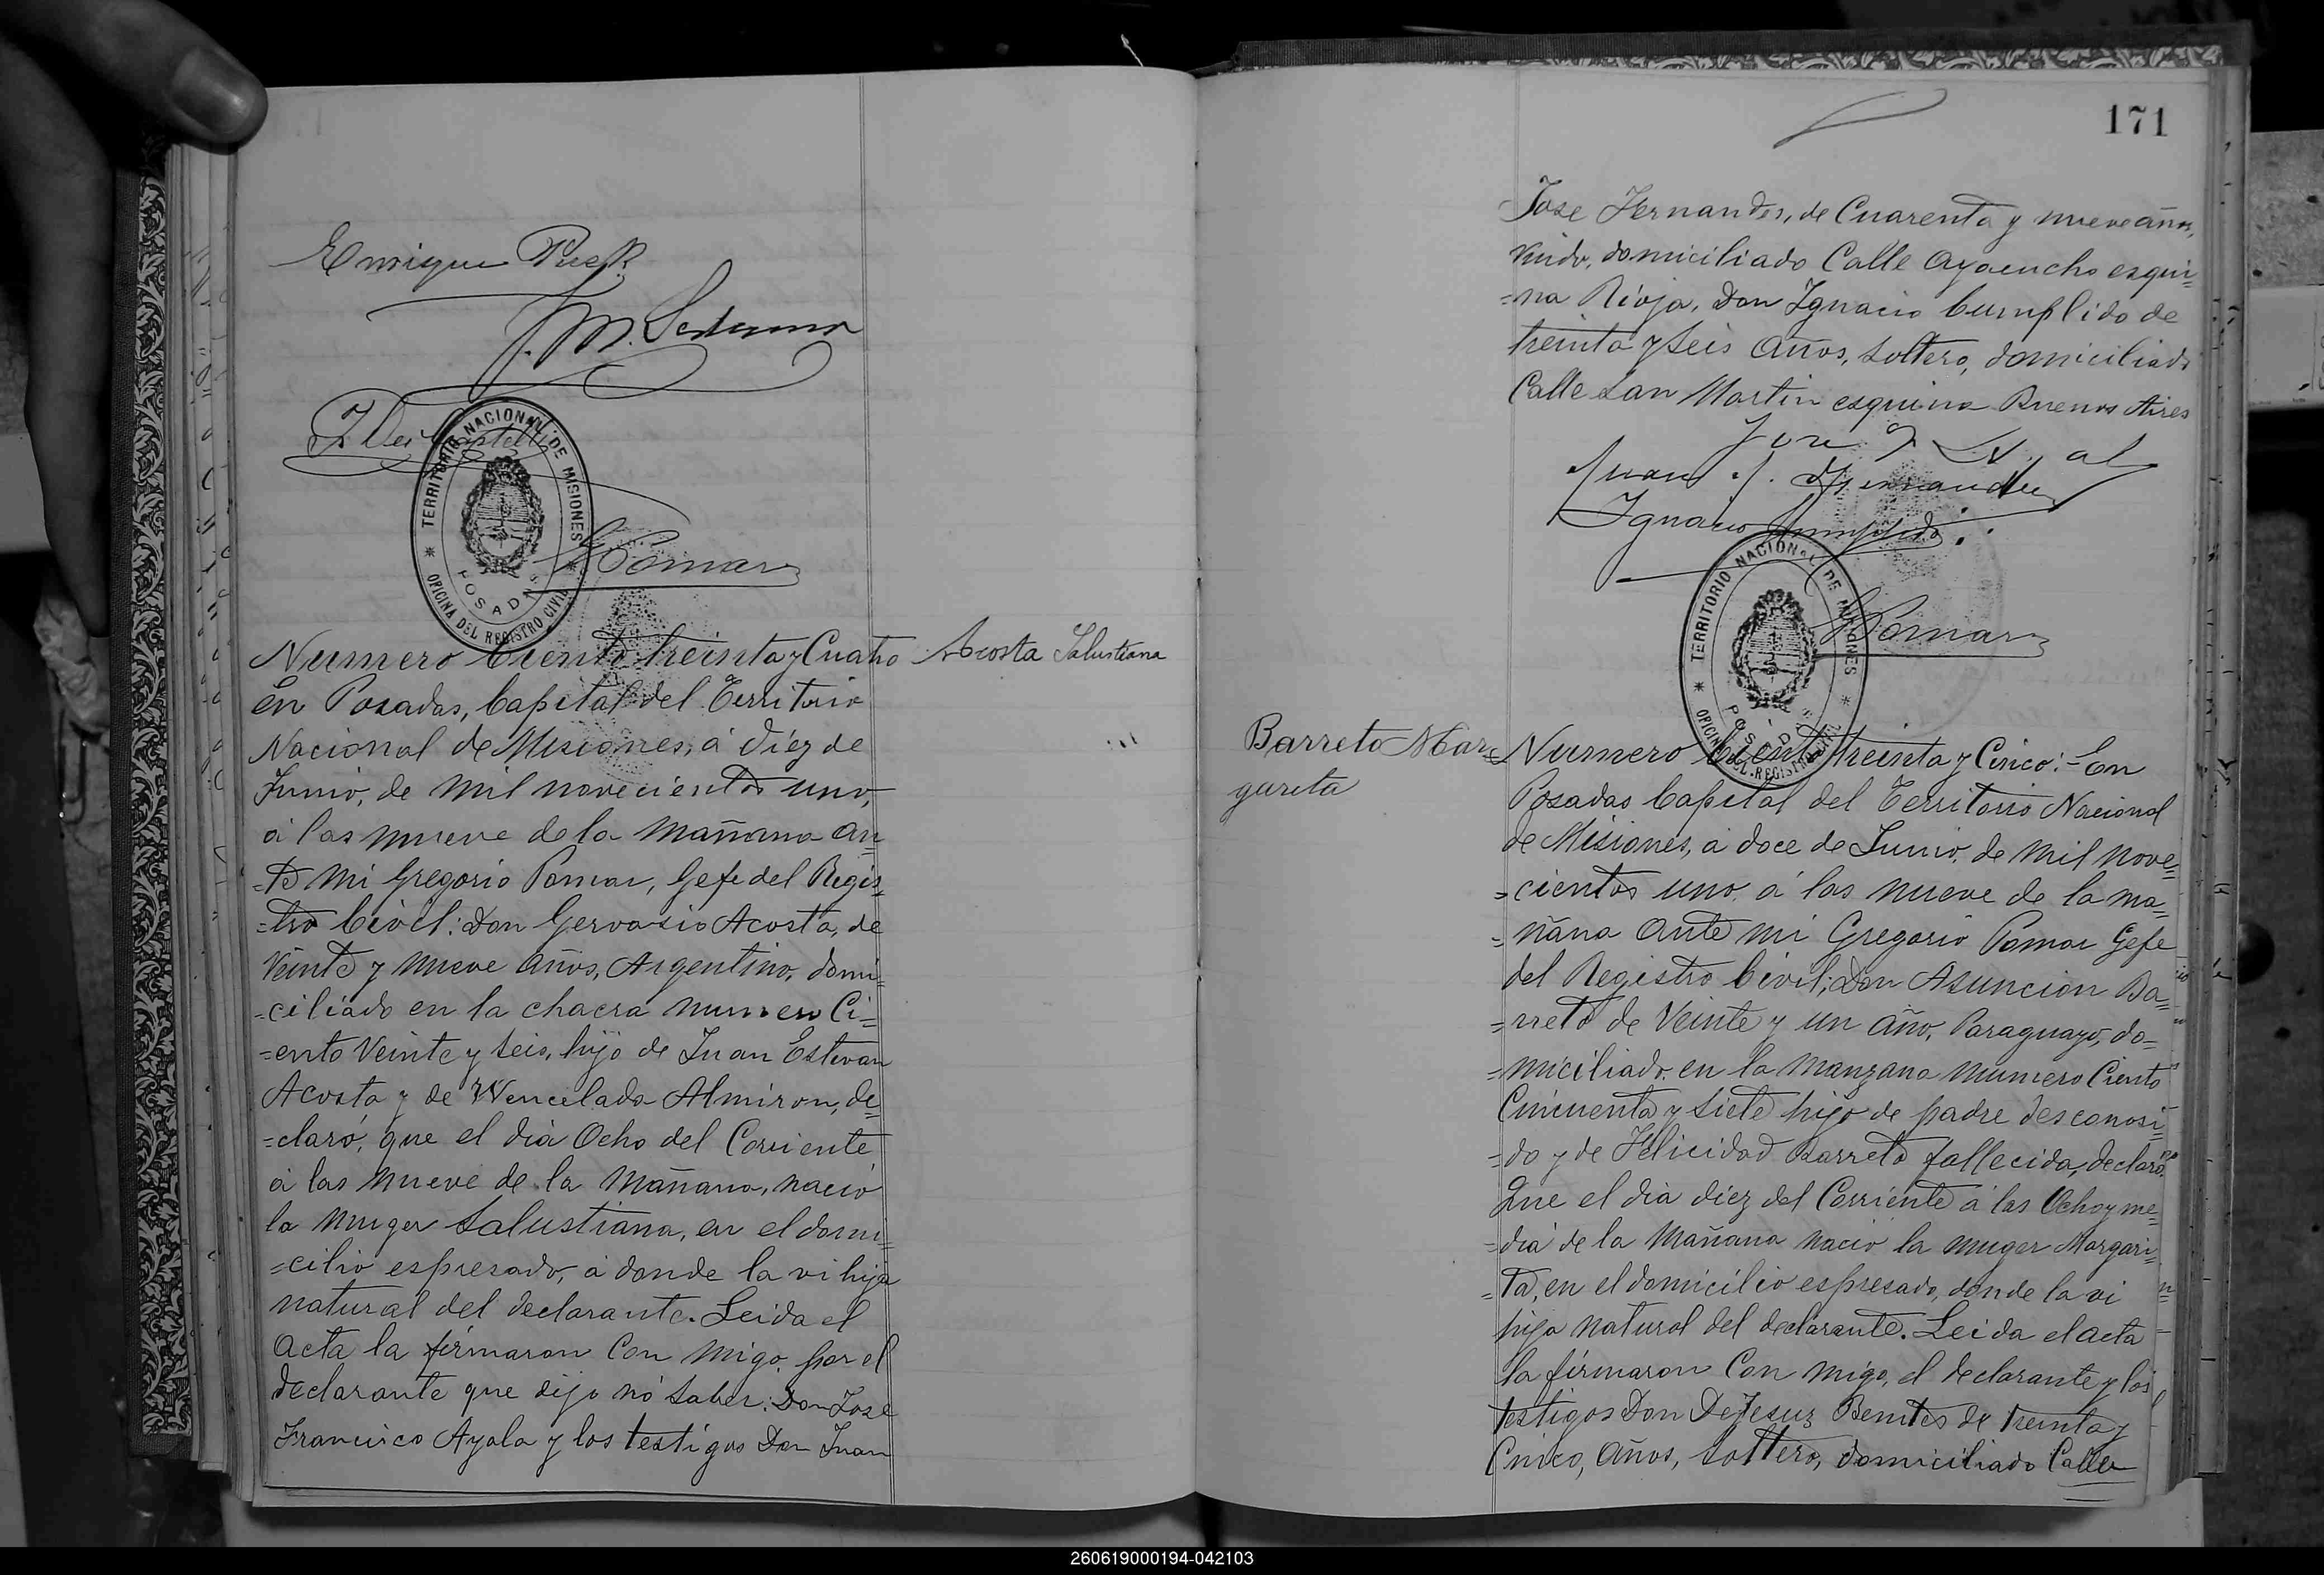 Enrique
J. M. Ledesma
TERRITORIO NACIONAL DE MISIONES
POSADAS
OFICINA DEL REGISTRO CIVIL
G Pomar
Numero Ciento treinta y Cuatro
Acosta Salustiana
En Posadas, Capital del Territorio
Nacional de Misiones, á diez de
Junio, de mil novecientos uno,
á las nueve de la mañana an=
=te mi Gregorio Pomar, Gefe del Regis=
=tro Civil: Don Gervasio Acosta, de
Veinte y nueve años, Argentino, domi=
=ciliado en la chacra numero Ci=
=ento Veinte y seis, hijo de Juan Estevan
Acosta y de Wencelada Almiron, de=
=claró, que el dia Ocho del Corriente
á las nueve de la mañana, nació
la muger Salustiana, en el domi=
=cilio espresado, a donde la vi hija
natural del declarante. Leida el
acta la firmaron Con migo, por el
declarante que dijo nó saber: Don Jose
Francisco Ayala y los testigos Don Juan
171
Jose Hernandes, de Cuarenta y nueve años,
viudo, domiciliado Calle Ayacucho esqui=
=na Rioja, Don Ignacio Cumplido de
treinta y seis años, soltero, domiciliado
Calle San Martin esquina Buenos Aires
Juan J. Hernandez
Ignacio Cumplido
TERRITORIO NACIONAL DE MISIONES
POSADAS
OFICINA DEL REGISTRO CIVIL
G Pomar
Barreto Mar=
garita
Numero Ciento treinta y Cinco:=En
Posadas Capital del Territorio Nacional
de Misiones, á doce de Junio, de mil nove=
=cientos uno, á las nueve de la ma=
=ñana ante mi Gregorio Pomar Gefe
del Registro Civil; Don Asuncion Ba=
=rreto de Veinte y un año, Paraguayo, do=
=miciliado, en la manzana numero Ciento
Cincuenta y siete hijo de padre desconosi=
=do y de Felicidad Barreto fallecida, declaró,
Que el dia diez del Corriente á las Ocho y me=
=dia de la mañana nació la muger Margari=
=ta, en el domicilio espresado, donde la vi
hija natural del declarante. Leida el acta
la firmaron Con migo, el declarante y los
testigos Don DeJesus Benites de treinta y
Cinco, años, soltero, domiciliado Calle
260619000194-042103